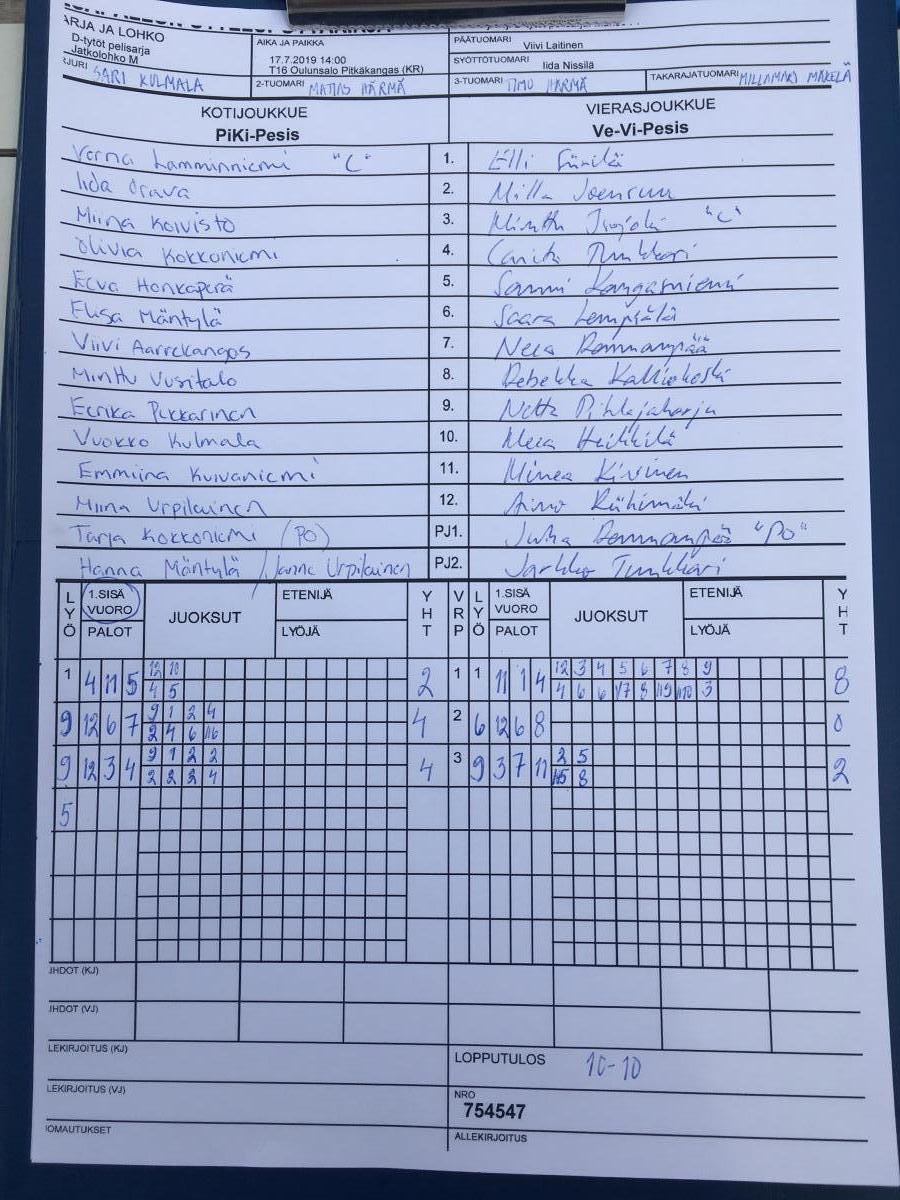 ARJA JA LOHKO
D-tytöt pelisarja
Jatkolohko M
AIKA JA PAIKKA
17.7.2019 14:00
T16 Oulunsalo Pitkäkangas (KR)
PÄÄTUOMARI
Viivi Laitinen
SYÖTTÖTUOMARI
Iida Nissilä
JURI SARI KULMALA
2-TUOMARI MATIAS HÄRMÄ
3-TUOMARI TIMO HÄRMÄ
TAKARAJATUOMARI MILLAMARI MÄKELÄ
KOTIJOUKKUE
PiKi-Pesis
VIERASJOUKKUE
Ve-Vi-Pesis
Verna Lamminniemi "C" 1. Elli
Iida Orava 2. Milla Joensuu
Miina Koivisto 3. Minttu "C"
Olivia Kokkoniemi 4. Carita Tunkkari
Eeva Honkaperä 5. Sanni Kangasniemi
Elisa Mäntylä 6. Saara Lempiälä
Viivi Aarrekangas 7. Neea Rannanpää
Minttu Uusitalo 8. Rebekka Kalliokoski
Eerika Pukkarinen 9. Netta Pihlajaharju
Vuokko Kulmala 10. Meea Heikkilä
Emmiina Kuivaniemi 11. Minea Kivinen
Miina Urpilainen 12. Aino Riihimäki
Tarja Kokkoniemi (PO) PJ1. Juha Rannanpää "PO"
Hanna Mäntylä / Janne Urpilainen PJ2. Jarkko Tunkkari
LYÖ 1.SISÄ VUORO PALOT JUOKSUT ETENIJÄ LYÖJÄ YHT VRP LYÖ 1.SISÄ VUORO PALOT JUOKSUT ETENIJÄ LYÖJÄ YHT
12 10 12 3 4 5 6 7 8 9
1 4 11 5 4 5 2 1 1 11 1 4 4 6 6 1/7 8 1/9 1/10 3 8
9 1 2 4
9 12 6 7 2 4 6 1/6 4 2 6 12 6 8 0
9 1 2 2 2 5
9 12 3 4 2 2 2 4 4 3 9 3 7 11 8 2
5
JHDOT (KJ)
JHDOT (VJ)
LEKIRJOITUS (KJ)
LOPPUTULOS 10-10
LEKIRJOITUS (VJ)
NRO
754547
OMAUTUKSET
ALLEKIRJOITUS